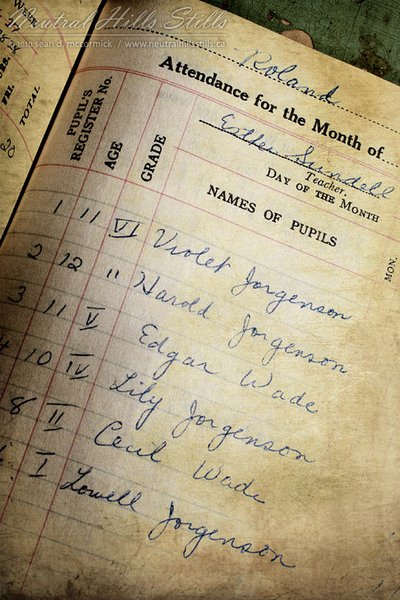 Neutral Hills Stills
2010 sean d. mccormick / www.neutralhillsstills.ca
Roland
Attendance for the Month of
Esther Sundell
Teacher.
DAY OF THE MONTH
MON.
PUPIL'S
REGISTER No.
AGE
GRADE
NAMES OF PUPILS
1 11 VI Violet Jorgenson
2 12 " Harold Jorgenson
3 11 V Edgar Wade
4 10 IV Lily Jorgenson
8 II Cecil Wade
I Lowell Jorgenson
FRI.
TOTAL
20